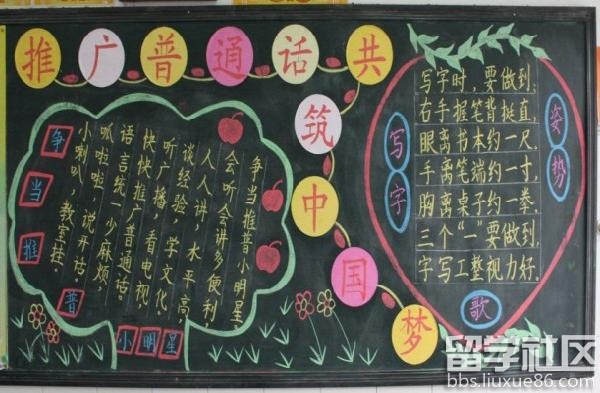 推广普通话共筑中国梦
争当推普小明星
小喇叭,教室挂.
呱啦啦,说开话,
语言统一少麻烦,
快快推广普通话。
听广播,看电视
谈经验,学文化。
人人讲,水平高,
会听会讲多便利,
争当推普小明星.
写字姿势歌
写字时,要做到,
右手握笔背挺直,
眼离书本约一尺,
手离笔端约一寸,
胸离桌子约一拳,
三个“一”要做到,
字写工整视力好.
留学社区
bbs.liuxue86.com